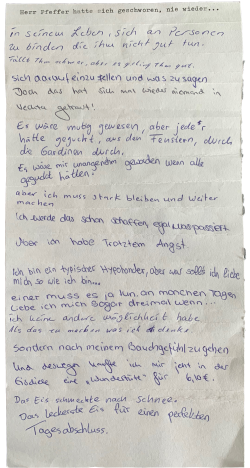 Herr Pfeffer hatte sich geschworen, nie wieder...
in seinem Leben, sich an Personen
zu binden die ihm nicht gut tun.
Fällt ihm schwer, aber es gelang ihm gut.
sich darauf einzustellen und was zu sagen
Doch das hat sich nur wieder niemand in
getraut!
Es wäre mutig gewesen, aber jede*r
hätte geguckt, aus den Fenstern, durch
die Gardinen durch.
Es wäre mir unangenehm geworden wenn alle
geguckt hätten.
aber ich muss stark bleiben und weiter
machen
Ich werde das schon schaffen, egal was passiert.
Aber ich habe Trotzdem Angst.
Ich bin ein typischer Hypochonder, aber was solls ich liebe
mich so wie ich bin...
einer muss es ja tun, an manchen Tagen
liebe ich mich sogar dreimal wenn...
ich keine andere möglichkeit habe
Als das zu machen was ich denke.
sondern nach meinem Bauchgefühl zu gehen
Und deswegen kaufte ich mir jetzt in der
Eisdiele eine "Wundertüte" für 6,10 €.
Das Eis schmeckte nach Schnee.
Das leckerste Eis für einen perfekten
Tagesabschluss.